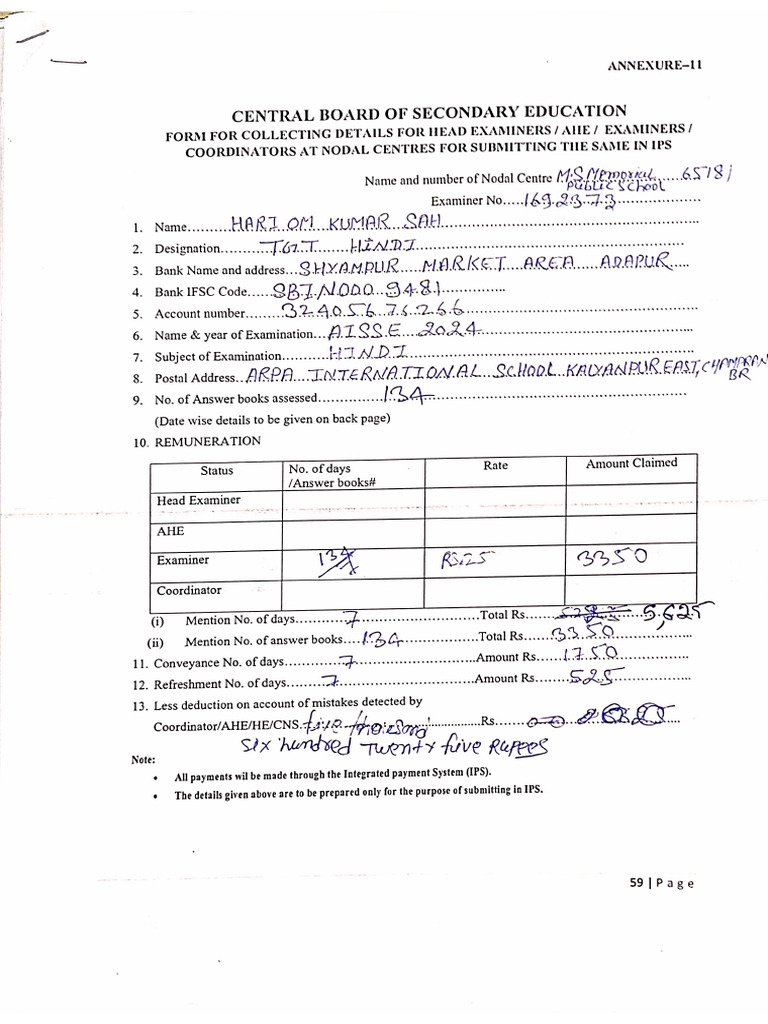 ANNEXURE–11
CENTRAL BOARD OF SECONDARY EDUCATION
FORM FOR COLLECTING DETAILS FOR HEAD EXAMINERS / AHE / EXAMINERS /
COORDINATORS AT NODAL CENTRES FOR SUBMITTING THE SAME IN IPS
Name and number of Nodal Centre M.S Memorial Public School 65781
Examiner No.....16923773
1. Name.........HARI OM KUMAR SAH
2. Designation.........TGT HINDI
3. Bank Name and address...SHYAMPUR MARKET AREA ADAPUR
4. Bank IFSC Code......SBIN0009481
5. Account number.........32405676266
6. Name & year of Examination....AISSE 2024
7. Subject of Examination.........HINDI
8. Postal Address...ARPA INTERNATIONAL SCHOOL KALYANPUR EAST, CHAMPARAN BR
9. No. of Answer books assessed.........134
(Date wise details to be given on back page)
10. REMUNERATION
Status No. of days /Answer books# Rate Amount Claimed
Head Examiner
AHE
Examiner 134 RS.25 3350
Coordinator
(i) Mention No. of days.........7.........Total Rs......... 5,625
(ii) Mention No. of answer books....134.........Total Rs......3350
11. Conveyance No. of days.........7.........Amount Rs......1750
12. Refreshment No. of days.........7.........Amount Rs......525
13. Less deduction on account of mistakes detected by
Coordinator/AHE/HE/CNS. five thousand.........Rs.........
six hundred Twenty five Rupees
Note:
• All payments wil be made through the Integrated payment System (IPS).
• The details given above are to be prepared only for the purpose of submitting in IPS.
59 | Page